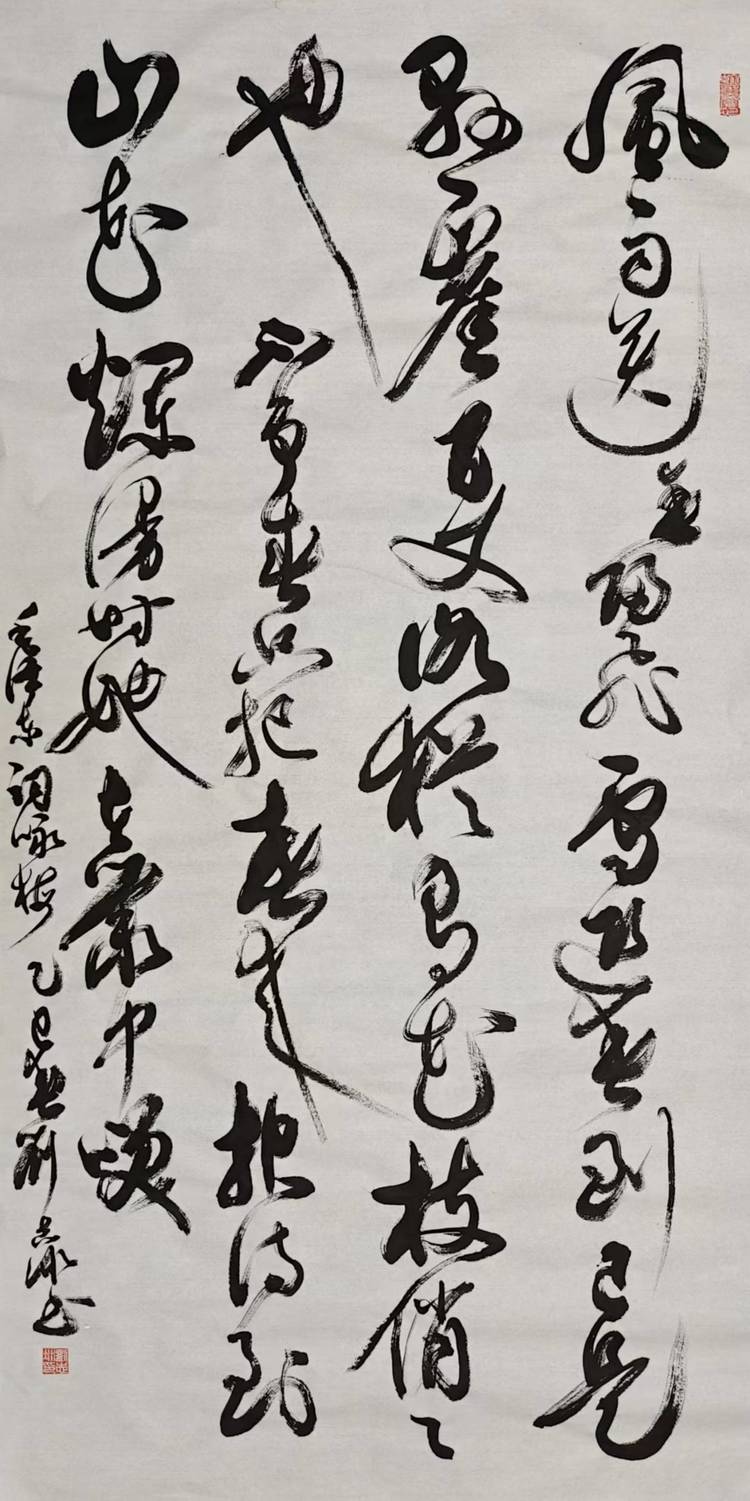 風雨送春歸飛雪迎春到已是
懸崖百丈冰猶有花枝俏々
也不争春只把春来报待到
山花爛漫时她在叢中笑
毛泽东词咏梅乙巳春刘书